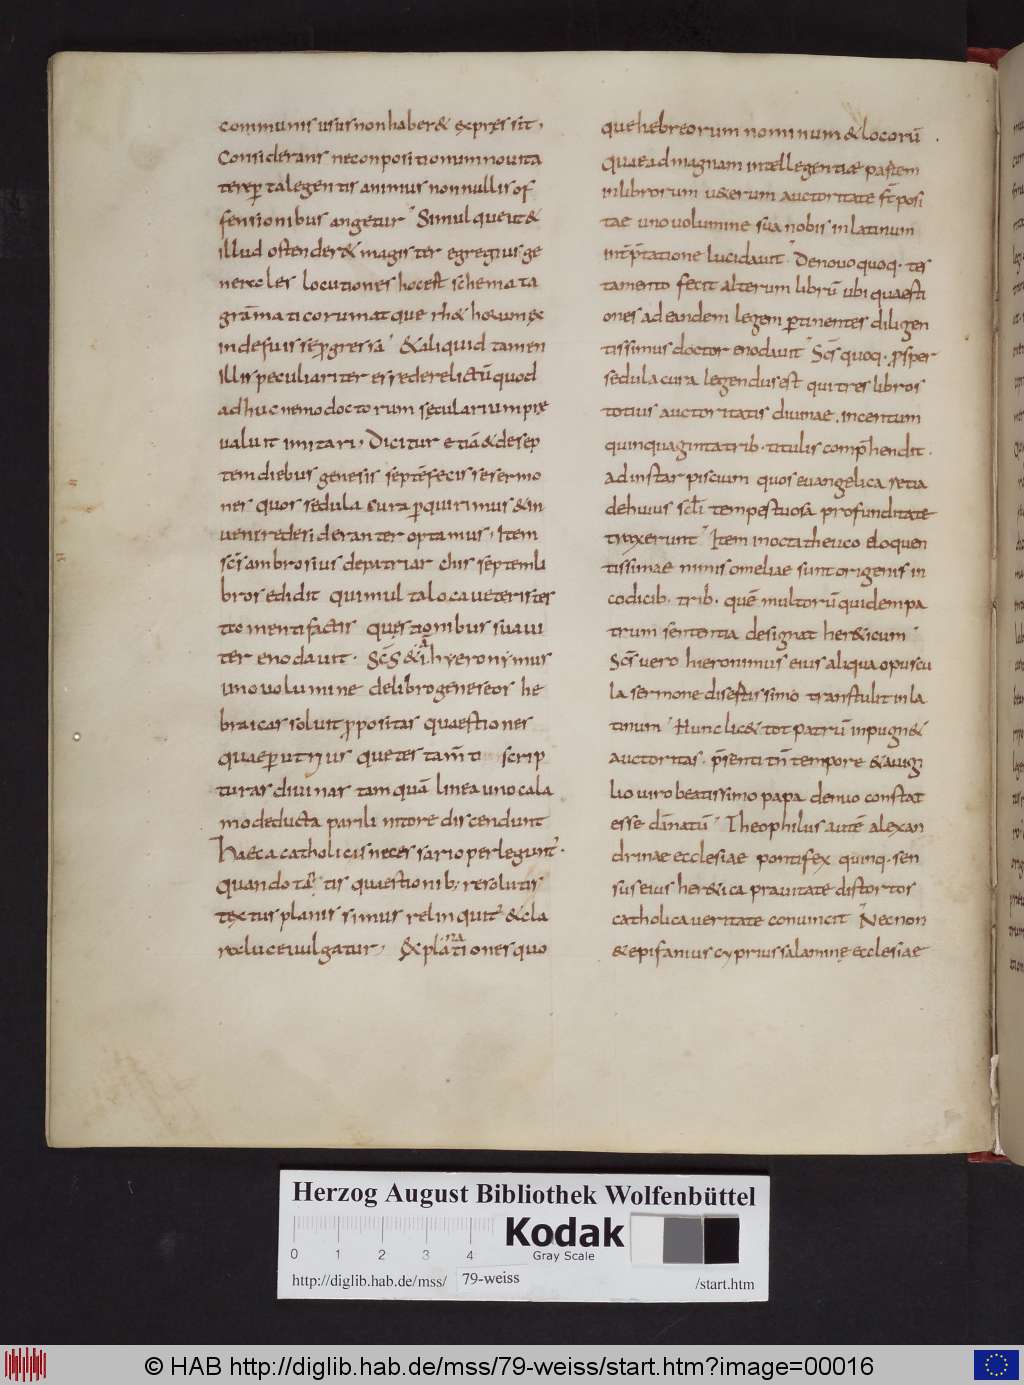 communis usus non haber& expres sit,
Considerans ne conpositionum nouita
te ērp̄ ta legentis animus non nullis of
fensionibus angetur Simulque ut&
illud ostender& magister egregius ge
neroles locutiones hoc est schemata
grām̄aticorum atque rh&horum ex
Considerans
illis peculiariter esse derelictū quod
adhuc nemo doctorum secularium pre
ualuit imitari, Dicitur etiā & desep
tem diebus genesis septē fecisse sermo
nes quos sedula cura ꝑquirimus & in
uenire desideranter optamus, Item
scs̄ ambrosius de patriarchis septem li
bros edidit qui multa loca ueteris tes
tamenti factis questionibus suaui
ter enodauit. Scs̄ &iā hyeronymus
uno uolumine de libro geneseos he
braicas soluit ꝓpositas quaestiones
quae ꝑ utriusque testam̄ti scrip
turas diuinas tamquā linea uno cala
mo deducta parili nitore discendunt
Haec a catholicis necessario perleguntᷣ.
Quando tātis quaestionib; resolutis
textus planissimus relinquitᷣ & cla
ra luce uulgatur, Explanationes quo
que hebreorum nominum & locorū.
Quae ad magnam intellegentiae partem
in librorum u&erum auctoritate ft̄ posi
tae uno uolumine sua nobis in latinum
int̄p̄tatione lucidauit. De nouo quoq. tes
tamento fecit alterum librū ubi quaesti
ones ad eandem legem ꝑtinentes diligen
tissimus doctor enodauit Scs̄ quoq. ꝓsper
sedula cura legendus est qui tres libros
totius auctoritatis diuinae. in centum
quinquaginta trib. titulis comp̄hendit.
ad instar piscium quos euangelica retia
de huius sēli tempestuosa profunditate
traxerunt Item in octatheuco eloquen
tissimae nimis omeliae sunt origenis in
codicib. trib. quē multorū quidem pa
trum sententia designat her&icum
Scs̄ uero hieronimus eius aliqua opuscu
la sermone disertissimo transtulit in la
tinum Hunc lic& tot patrū inpugn&
auctoritas. p̄senti tn̄ tempore & a uigi
lio uiro beatissimo papa denuo constat
esse dānatū Theophilus autē alexan
drinae ecclesiae pontifex quinq. sen
sus eius her&ica prauitate distortos
catholica ueritate conuincit Necnon
& epifanius cyprius salamine ecclesiae
Herzog August Bibliothek Wolfenbüttel
0 1 2 3 4
Kodak
Gray Scale
http://diglib.hab.de/mss/ 79-weiss /start.htm
© HAB http://diglib.hab.de/mss/79-weiss/start.htm?image=00016